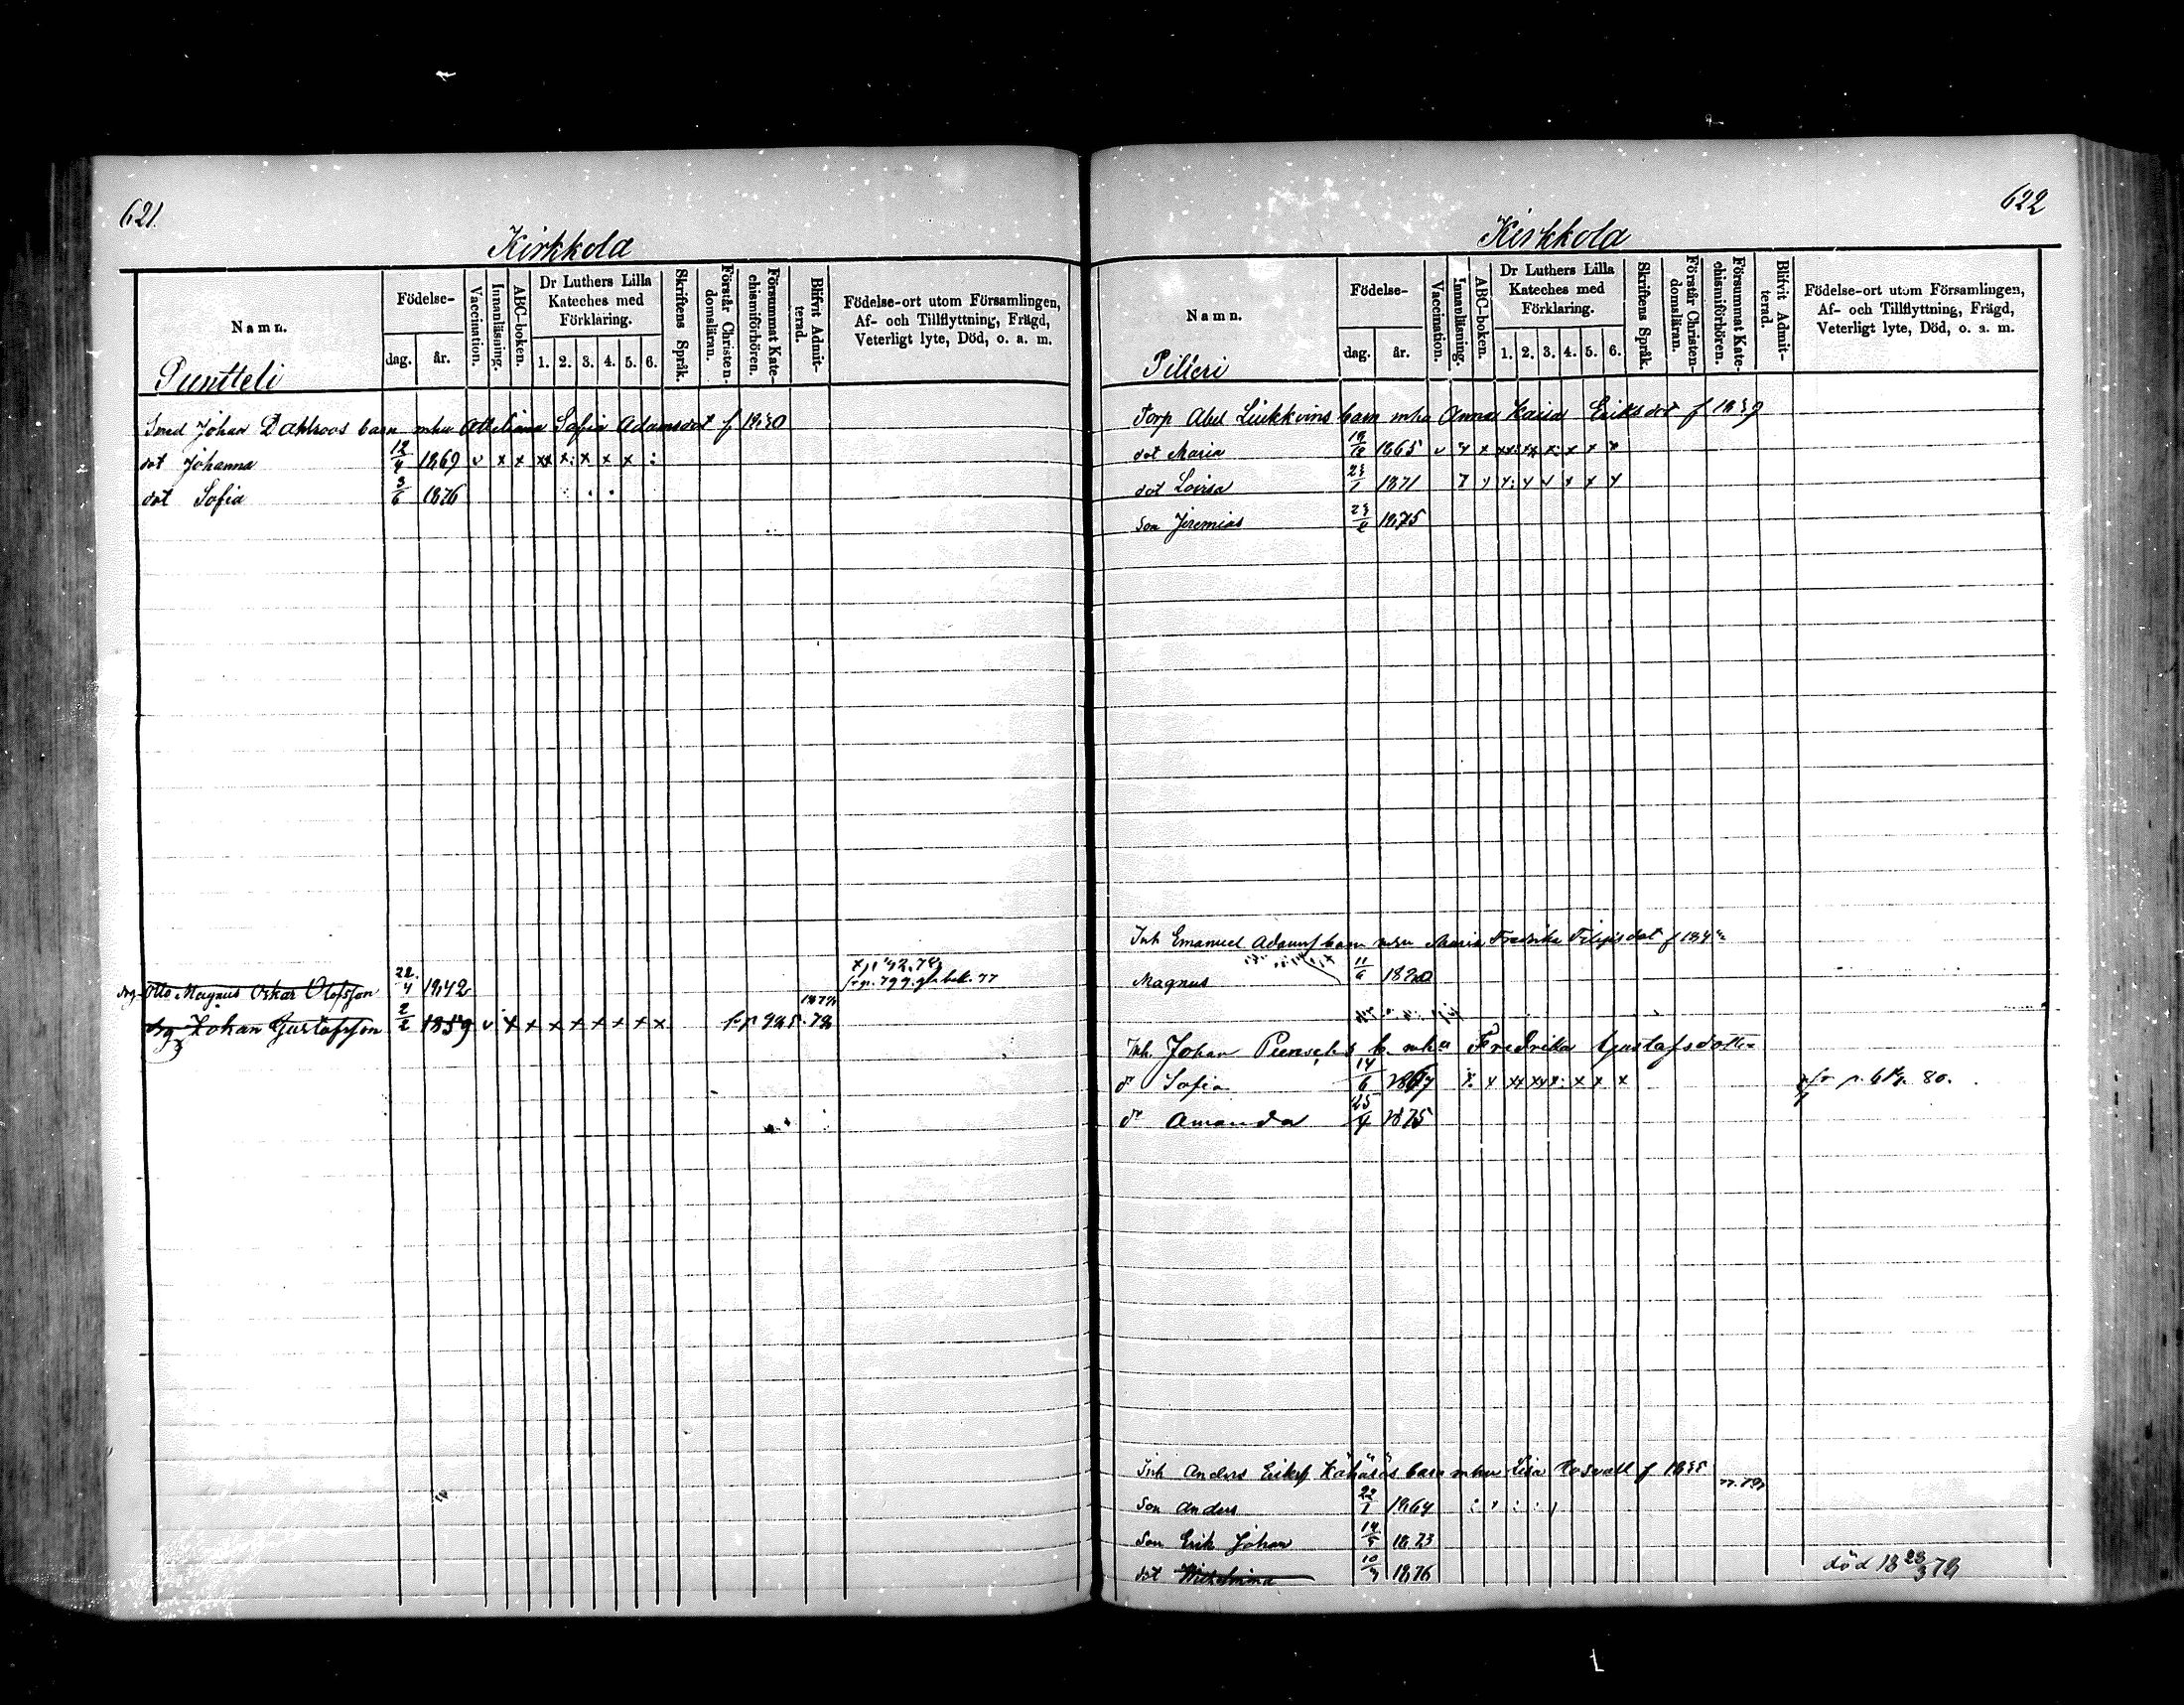 621.
Kirkkola
Namn. Födelse- dag. år. Vaccination. Innanläsning. ABC-boken. Dr Luthers Lilla Kateches med Förklaring. 1. 2. 3. 4. 5. 6. Skriftens Språk. Förstår Christendomsläran. Försummat Katechismiförhören. Blifvit Admitterad. Födelse-ort utom Församlingen, Af- och Tillflyttning, Frägd, Veterligt lyte, Död, o. a. m.
Puntteli
Smed Johan Dahlroos barn mhu Sofia Adamsdot f 1830
dot Johanna 12/4 1869 v x x xx x: x x x :
dot Sofia 3/6 1876
drg Otto Magnus Oskar Olofsson 22/4 1842
drg Johan Gustafsson 2/2 1859 v x x x x x x x x
622
Kirkkola
Namn. Födelse- dag. år. Vaccination. Innanläsning. ABC-boken. Dr Luthers Lilla Kateches med Förklaring. 1. 2. 3. 4. 5. 6. Skriftens Språk. Förstår Christendomsläran. Försummat Katechismiförhören. Blifvit Admitterad. Födelse-ort utom Församlingen, Af- och Tillflyttning, Frägd, Veterligt lyte, Död, o. a. m.
Pilleri
Torp Abel barn mhu Anna Kaisa Eriksdot f 1839
dot Maria 1865
dot Lovisa 1871
son Jeremias 1875
Inh Emanuel barn mhu Maria Fredrika Filipsdot f
Magnus 11/6
Inh. Johan b. mhu Fredrika Gustafsdotter
dr Sofia 14/6 1867
dr Amanda 25/4 1875
Inh Anders barn mhu Lisa f 1835
son Anders 22/1 1864
son Erik Johan 14/5 1873
dot Wilhelmina 1876 död 18 23/3 78